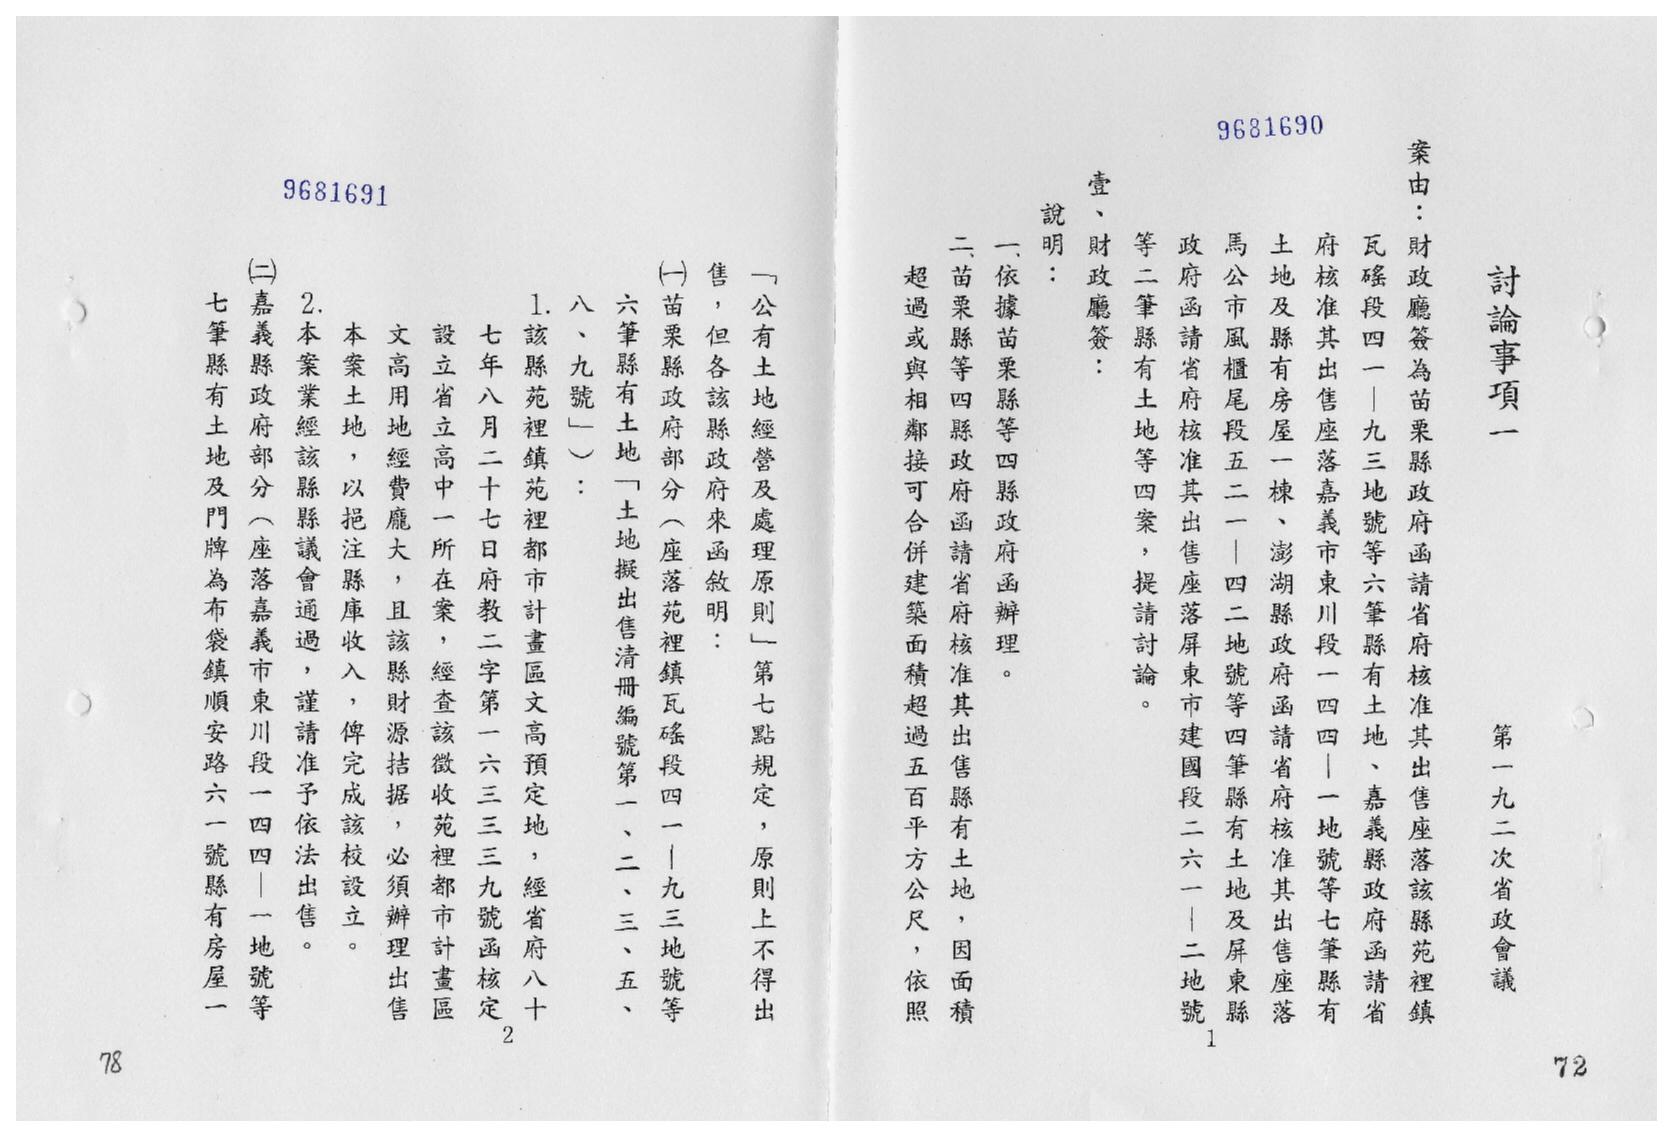 9681690
討論事項一
第一九二次省政會議
案由：財政廳簽為苗栗縣政府函請省府核准其出售座落該縣苑裡鎮
瓦磘段四一—九三地號等六筆縣有土地、嘉義縣政府函請省
府核准其出售座落嘉義市東川段一四四—一地號等七筆縣有
土地及縣有房屋一棟、澎湖縣政府函請省府核准其出售座落
馬公市風櫃尾段五二一—四二地號等四筆縣有土地及屏東縣
政府函請省府核准其出售座落屏東市建國段二六一—二地號
等二筆縣有土地等四案，提請討論。
壹、財政廳簽：
說明：
一、依據苗栗縣等四縣政府函辦理。
二、苗栗縣等四縣政府函請省府核准其出售縣有土地，因面積
超過或與相鄰接可合併建築面積超過五百平方公尺，依照
1
72
9681691
「公有土地經營及處理原則」第七點規定，原則上不得出
售，但各該縣政府來函敘明：
㈠苗栗縣政府部分（座落苑裡鎮瓦磘段四一—九三地號等
六筆縣有土地「土地擬出售清冊編號第一、二、三、五、
八、九號」）：
1.該縣苑裡鎮苑裡都市計畫區文高預定地，經省府八十
七年八月二十七日府教二字第一六三三三九號函核定
設立省立高中一所在案，經查該徵收苑裡都市計畫區
文高用地經費龐大，且該縣財源拮据，必須辦理出售
本案土地，以挹注縣庫收入，俾完成該校設立。
2.本案業經該縣縣議會通過，謹請准予依法出售。
㈡嘉義縣政府部分（座落嘉義市東川段一四四—一地號等
七筆縣有土地及門牌為布袋鎮順安路六一號縣有房屋一
2
78